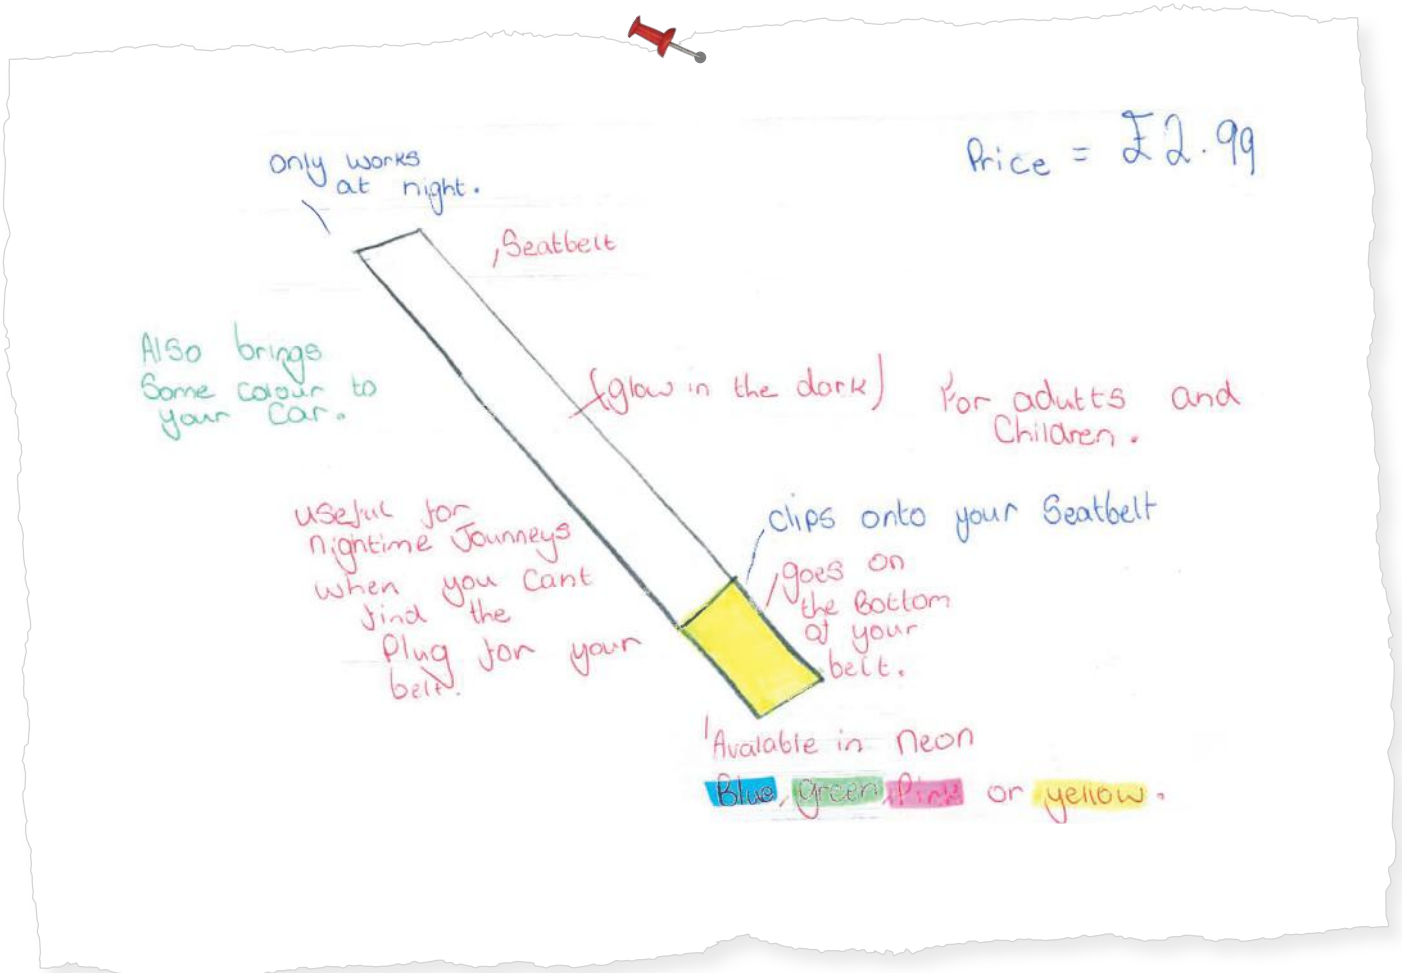 Price = £2.99
only works
at night.
Seatbelt
Also brings
Some colour to
your car.
(glow in the dark)
For adults and
Children.
useful for
nightime Journeys
when you cant
find the
Plug for your
belt.
clips onto your Seatbelt
goes on
the Bottom
of your
belt.
Avalable in neon
Blue, Green, Pink or yellow.